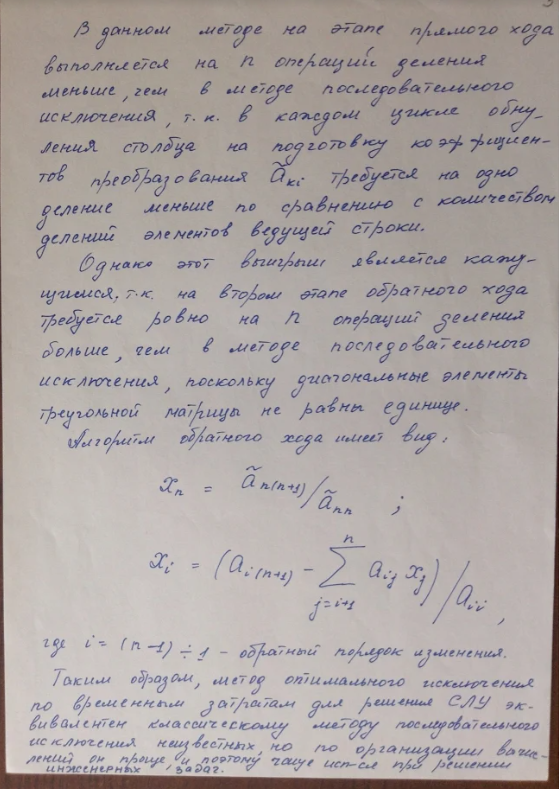 В данном методе на этапе прямого хода
выполняется на n операций деления
меньше, чем в методе последовательного
исключения, т.к. в каждом цикле обну-
ления столбца на подготовку коэффициен-
тов преобразования ã_ki требуется на одно
деление меньше по сравнению с количеством
делений элементов ведущей строки.
Однако этот выигрыш является кажу-
щимся, т.к. на втором этапе обратного хода
требуется ровно на n операций деления
больше, чем в методе последовательного
исключения, поскольку диагональные элементы
треугольной матрицы не равны единице.
Алгоритм обратного хода имеет вид:
x_n = ã_n(n+1) / ã_nn ;
x_i = (a_i(n+1) - ∑_{j=i+1}^{n} a_ij x_j) / a_ii ,
где i = (n-1) ÷ 1 - обратный порядок изменения.
Таким образом, метод оптимального исключения
по временным затратам для решения СЛУ эк-
вивалентен классическому методу последовательного
исключения неизвестных, но по организации вычис-
лений он проще, и поэтому чаще исп-ся при решении
инженерных задач.